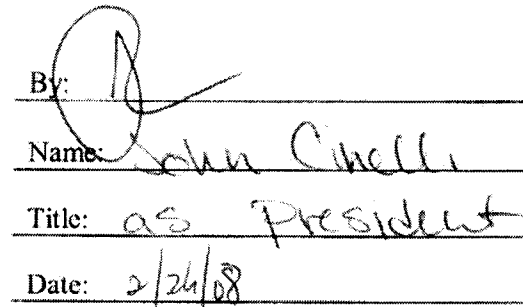 By:
Name: John Cinelli
Title: as President
Date: 2/26/08